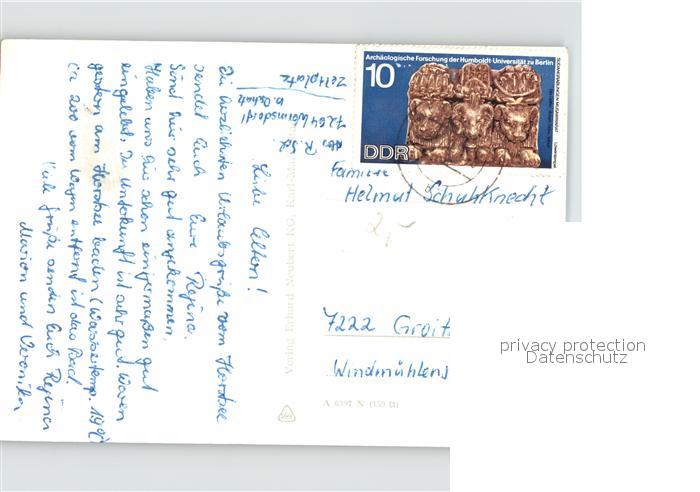 Archäologische Forschung der Humboldt-Universität zu Berlin
10
DDR
Zeltplatz
b. Oschatz
7264 Wermsdorf
Abs. R. Sch.
Liebe Eltern!
Die herzlichsten Urlaubsgrüße vom Horstsee
sendet Euch Eure Regina.
Sind hier sehr gut angekommen,
Haben uns hier schon einigermaßen gut
eingelebt. Die Unterkunft ist sehr gut. Waren
gestern am Horstsee baden (Wassertemp. 19°)
ca 200 vom Wagen entfernt ist das Bad.
Viele Grüße senden Euch Regina
Marion und Veronika
Verlag Erhard Neubert KG,
A 6397 N (159 H)
Familie
Helmut Schuhknecht
2,-
7222 Groit
Windmühlens
privacy protection
Datenschutz